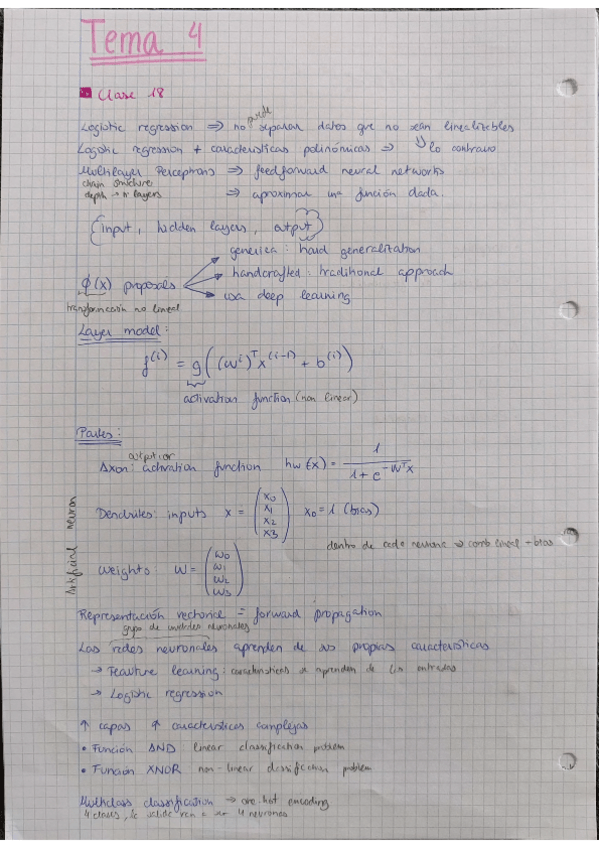 Tema 4
Clase 18
Logistic regression ⇒ no puede separar datos que no sean linealizables
Logistic regression + características polinómicas ⇒ lo contrario
Multilayer Perceptrons ⇒ feedforward neural networks
chain structure
depth → nº layers ⇒ aproximar una función dada.
(input, hidden layers, output)
generica: hard generalitation
ϕ(x) proposals handcrafted: traditional approach
usa deep learning
transformación no lineal
Layer model:
f^(i) = g((w^i)^T x^(i-1) + b^(i))
activation function (non linear)
Partes:
output
Axon: activation function hw(x) = 1 / (1 + e^(-W^T x))
Artificial neuron
Dendrites: inputs x = (x0 x1 x2 x3) x0 = 1 (bias)
dentro de cada neurona → comb lineal + bias
weights: W = (w0 w1 w2 w3)
Representación vectorial = forward propagation
grupo de unidades neuronales
Las redes neuronales aprenden de sus propias características
→ Feauture learning: características se aprenden de las entradas
→ Logistic regression
↑ capas ↑ características complejas
• Función AND linear classification problem
• Función XNOR non-linear classification problem
Multiclass classification → one-hot encoding
4 clases, 4 neuronas